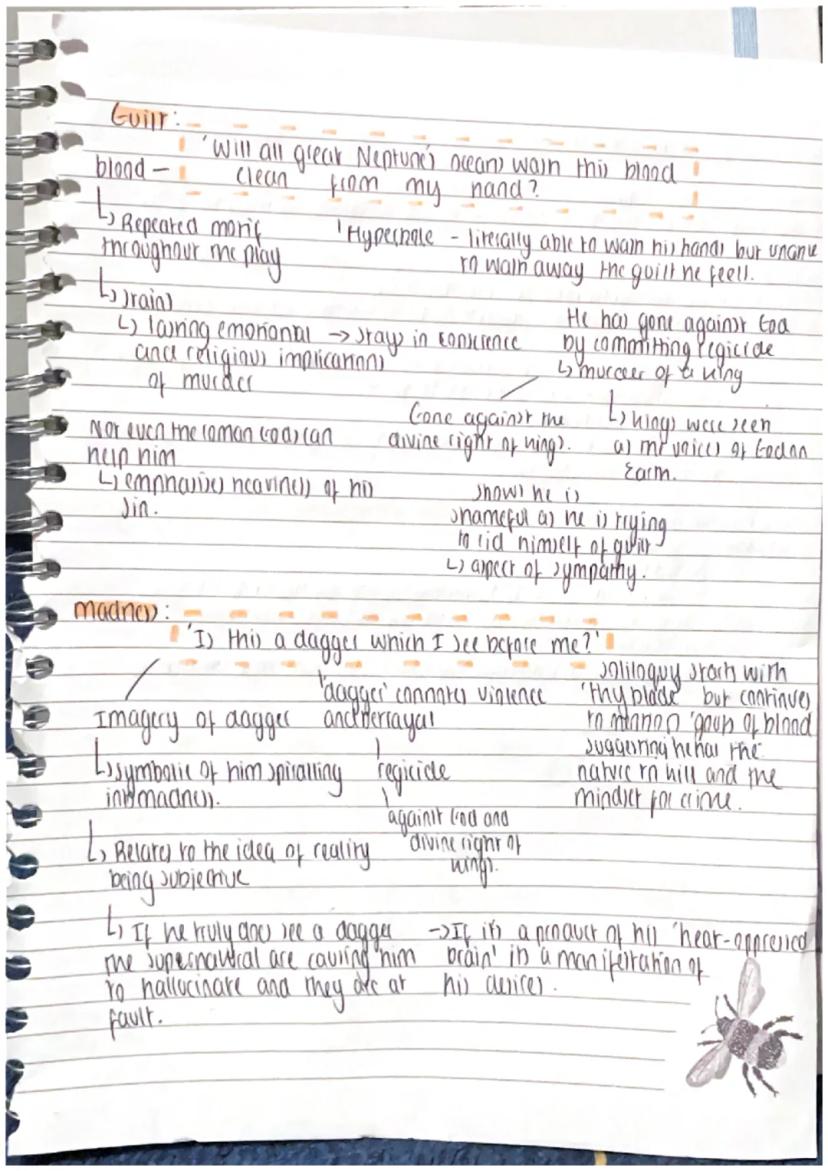 Guilt:
'Will all great Neptune's oceans wash this blood
clean from my hand?
blood –
↳ Repeated motif
throughout the play
'Hyperbole – literally able to wash his hands but unable
to wash away the guilt he feels.
↳ stains
↳ lasting emotional → stays in conscience
and religious implications
of murder
He has gone against God
by committing regicide
↳ murder of a king
Gone against the
divine right of kings.
↳ kings were seen
as the voices of God on
Earth.
Not even the roman Gods can
help him
↳ emphasises heaviness of his
sin.
shows he is
shameful as he is trying
to rid himself of guilt
↳ aspect of sympathy.
madness:
'Is this a dagger which I see before me?'
Imagery of dagger
↳ symbolic of him spiralling
into madness.
↳ Relates to the idea of reality
being subjective
'dagger' connotes violence
and betrayal
regicide
against God and
'divine right of
kings.
soliloquy starts with
'thy blade' but continues
to mention 'gouts of blood
suggesting he has the
nature to kill and the
mindset for crime.
↳ If he truly does see a dagger
the supernatural are causing him
to hallucinate and they are at
fault.
→ If it's a product of his 'heat-oppressed
brain' it's a manifestation of
his desires.